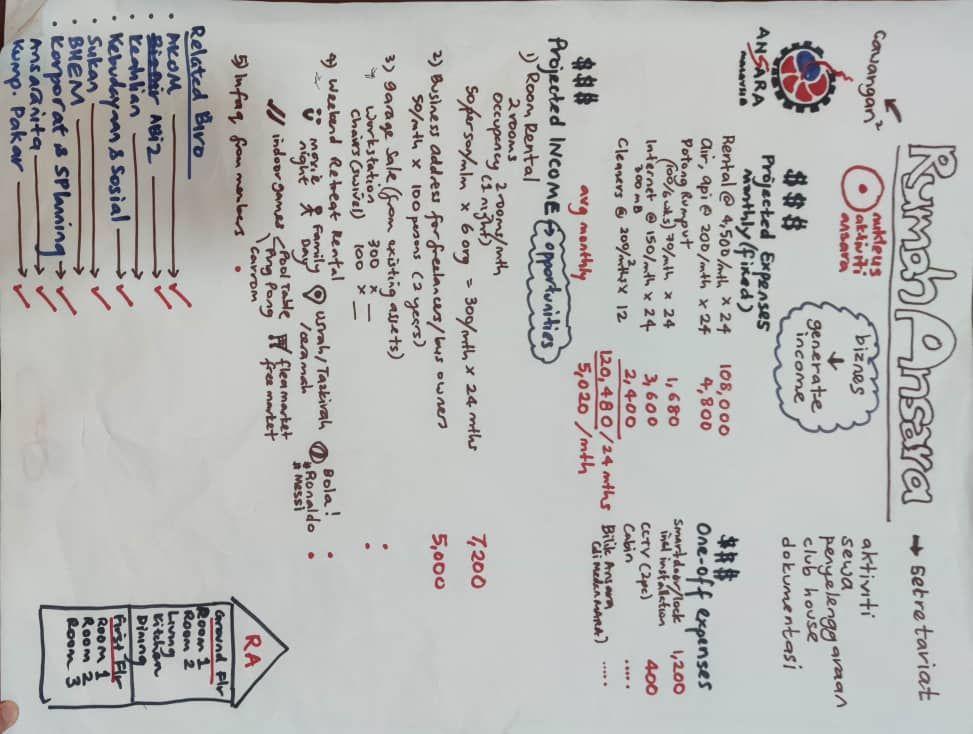 Cawangan²
ANSARA
MALAYSIA
Rumah Ansara
nukleus
aktiviti
ansara
biznes
generate
income
→ setretariat
aktiviti
sewa
penyelenggaraan
club house
dokumentasi
$$$
Projected Expenses
monthly (fixed)
Rental @ 4,500/mth x 24 108,000
Air, api @ 200/mth x 24 4,800
Potong Rumput
(60% wks) 70/mth x 24 1,680
Internet @ 150/mth x 24 3,600
300 mB
Cleaners @ 200/mths x 12 2,400
120,480/24 mths
avg monthly 5,020/mth
$$$
One-off expenses
smartdoor/lock
incl installation 1,200
CCTV (2pc) 400
Cabin .....
Bilik Ansara
(di Medan MARA) .....
$$$
Projected INCOME → opportunities
1) Room Rental
2 rooms
occupancy 2 room/mth
(1 night)
50/person/mlm x 6 org = 300/mth x 24 mths 7,200
2) Business address for freelancers/bus owners
50/mth x 100 persons (2 years) 5,000
3) Garage Sale (from existing assets)
Workstation 300 x
Chairs (swivel) 100 x
4) Weekend Retreat Rental
movie night
Family Day
Usrah/Tazkirah
/ceramah
Bola!
#Ronaldo
#Messi
indoor games
Pool Table
Ping Pong
Carrom
flea market
free market
5) Infaq from members
Related Biro
AKOM
ABiz
Keahlian
Kebudayaan & Sosial
Sukan
BHEM
Korporat & SPlanning
Ansaranita
Kump. Pakar
RA
Ground Flr
Room 1
Room 2
Living
Kitchen
Dining
First Flr
Room 1
Room 2
Room 3